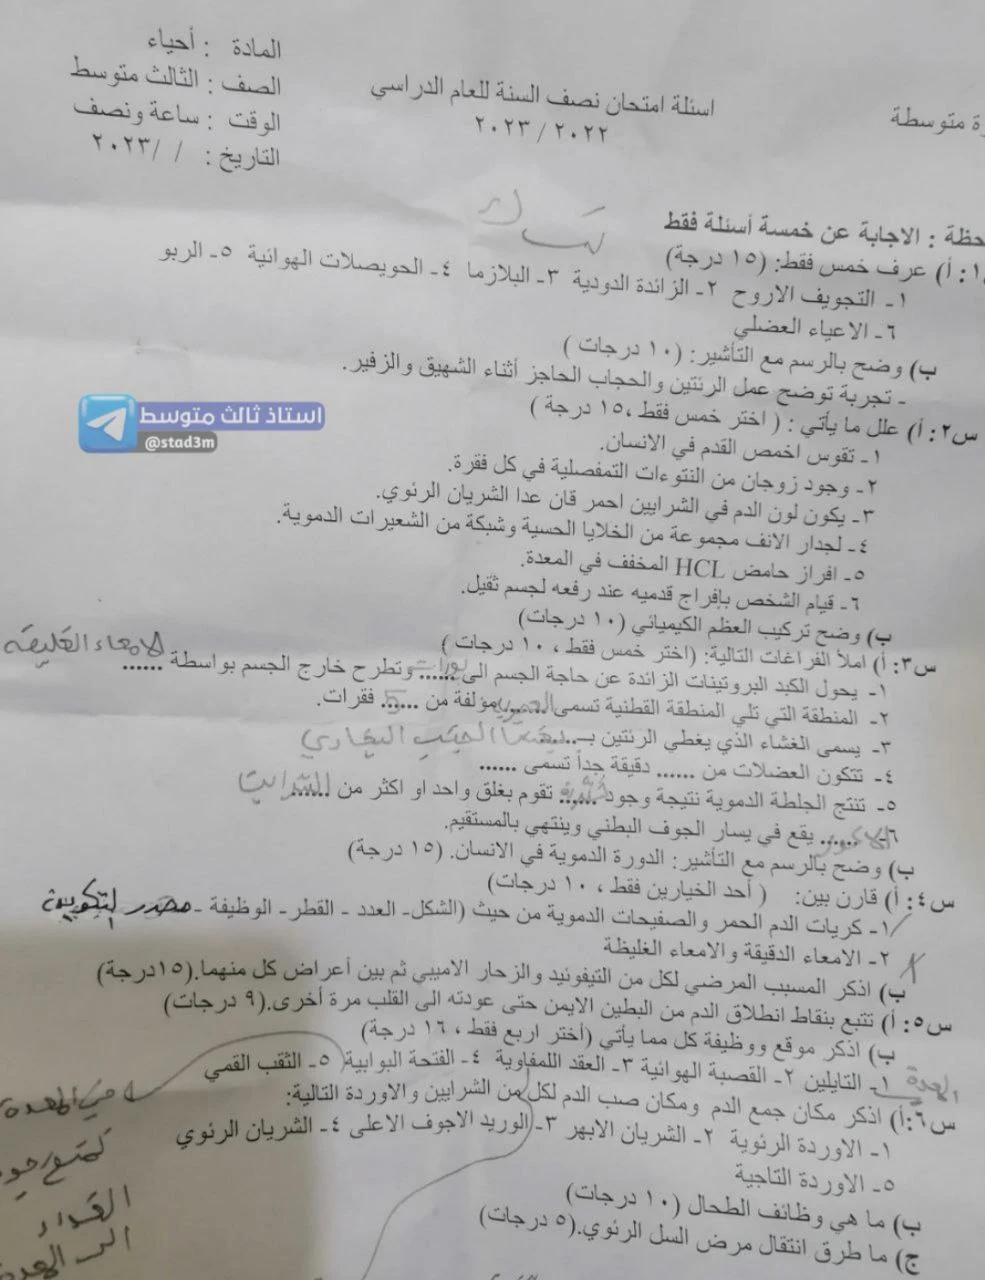 المادة : أحياء
الصف : الثالث متوسط
الوقت : ساعة ونصف
التاريخ : / /٢٠٢٣
اسئلة امتحان نصف السنة للعام الدراسي
٢٠٢٢ / ٢٠٢٣
متوسطة
حظة : الاجابة عن خمسة أسئلة فقط
١: أ) عرف خمس فقط: (١٥ درجة)
١- التجويف الاروح ٢- الزائدة الدودية ٣- البلازما ٤- الحويصلات الهوائية ٥- الربو
٦- الاعياء العضلي
ب) وضح بالرسم مع التأشير: (١٠ درجات)
- تجربة توضح عمل الرئتين والحجاب الحاجز أثناء الشهيق والزفير.
استاذ ثالث متوسط
@stad3m
س٢: أ) علل ما يأتي : ( اختر خمس فقط ،١٥ درجة )
١- تقوس اخمص القدم في الانسان.
٢- وجود زوجان من النتوءات التمفصلية في كل فقرة.
٣- يكون لون الدم في الشرايين احمر قان عدا الشريان الرئوي.
٤- لجدار الانف مجموعة من الخلايا الحسية وشبكة من الشعيرات الدموية.
٥- افراز حامض HCL المخفف في المعدة.
٦- قيام الشخص بإفراج قدميه عند رفعه لجسم ثقيل.
ب) وضح تركيب العظم الكيميائي (١٠ درجات)
س٣: أ) املأ الفراغات التالية: (اختر خمس فقط ، ١٠ درجات) الامعاء الغليظة
١- يحول الكبد البروتينات الزائدة عن حاجة الجسم الى ...... وتطرح خارج الجسم بواسطة ......
٢- المنطقة التي تلي المنطقة القطنية تسمى ...... مؤلفة من ...... فقرات.
٣- يسمى الغشاء الذي يغطي الرئتين بـ......
٤- تتكون العضلات من ...... دقيقة جداً تسمى ......
٥- تنتج الجلطة الدموية نتيجة وجود ...... تقوم بغلق واحد او اكثر من ...... الشرايين
٦- ...... يقع في يسار الجوف البطني وينتهي بالمستقيم.
ب) وضح بالرسم مع التأشير: الدورة الدموية في الانسان. (١٥ درجة)
س٤: أ) قارن بين: ( أحد الخيارين فقط ، ١٠ درجات)
١- كريات الدم الحمر والصفيحات الدموية من حيث (الشكل- العدد - القطر- الوظيفة - مصدر
٢- الامعاء الدقيقة والامعاء الغليظة
ب) اذكر المسبب المرضي لكل من التيفوئيد والزحار الاميبي ثم بين أعراض كل منهما.(١٥درجة)
س٥: أ) تتبع بنقاط انطلاق الدم من البطين الايمن حتى عودته الى القلب مرة أخرى.(٩ درجات)
ب) اذكر موقع ووظيفة كل مما يأتي (أختر اربع فقط ، ١٦ درجة)
١- التايلين ٢- القصبة الهوائية ٣- العقد اللمفاوية ٤- الفتحة البوابية ٥- الثقب القمي
س٦:أ) اذكر مكان جمع الدم ومكان صب الدم لكل من الشرايين والاوردة التالية:
١- الاوردة الرئوية ٢- الشريان الابهر ٣- الوريد الاجوف الاعلى ٤- الشريان الرئوي
٥- الاوردة التاجية
ب) ما هي وظائف الطحال (١٠ درجات)
ج) ما طرق انتقال مرض السل الرئوي.(٥ درجات)